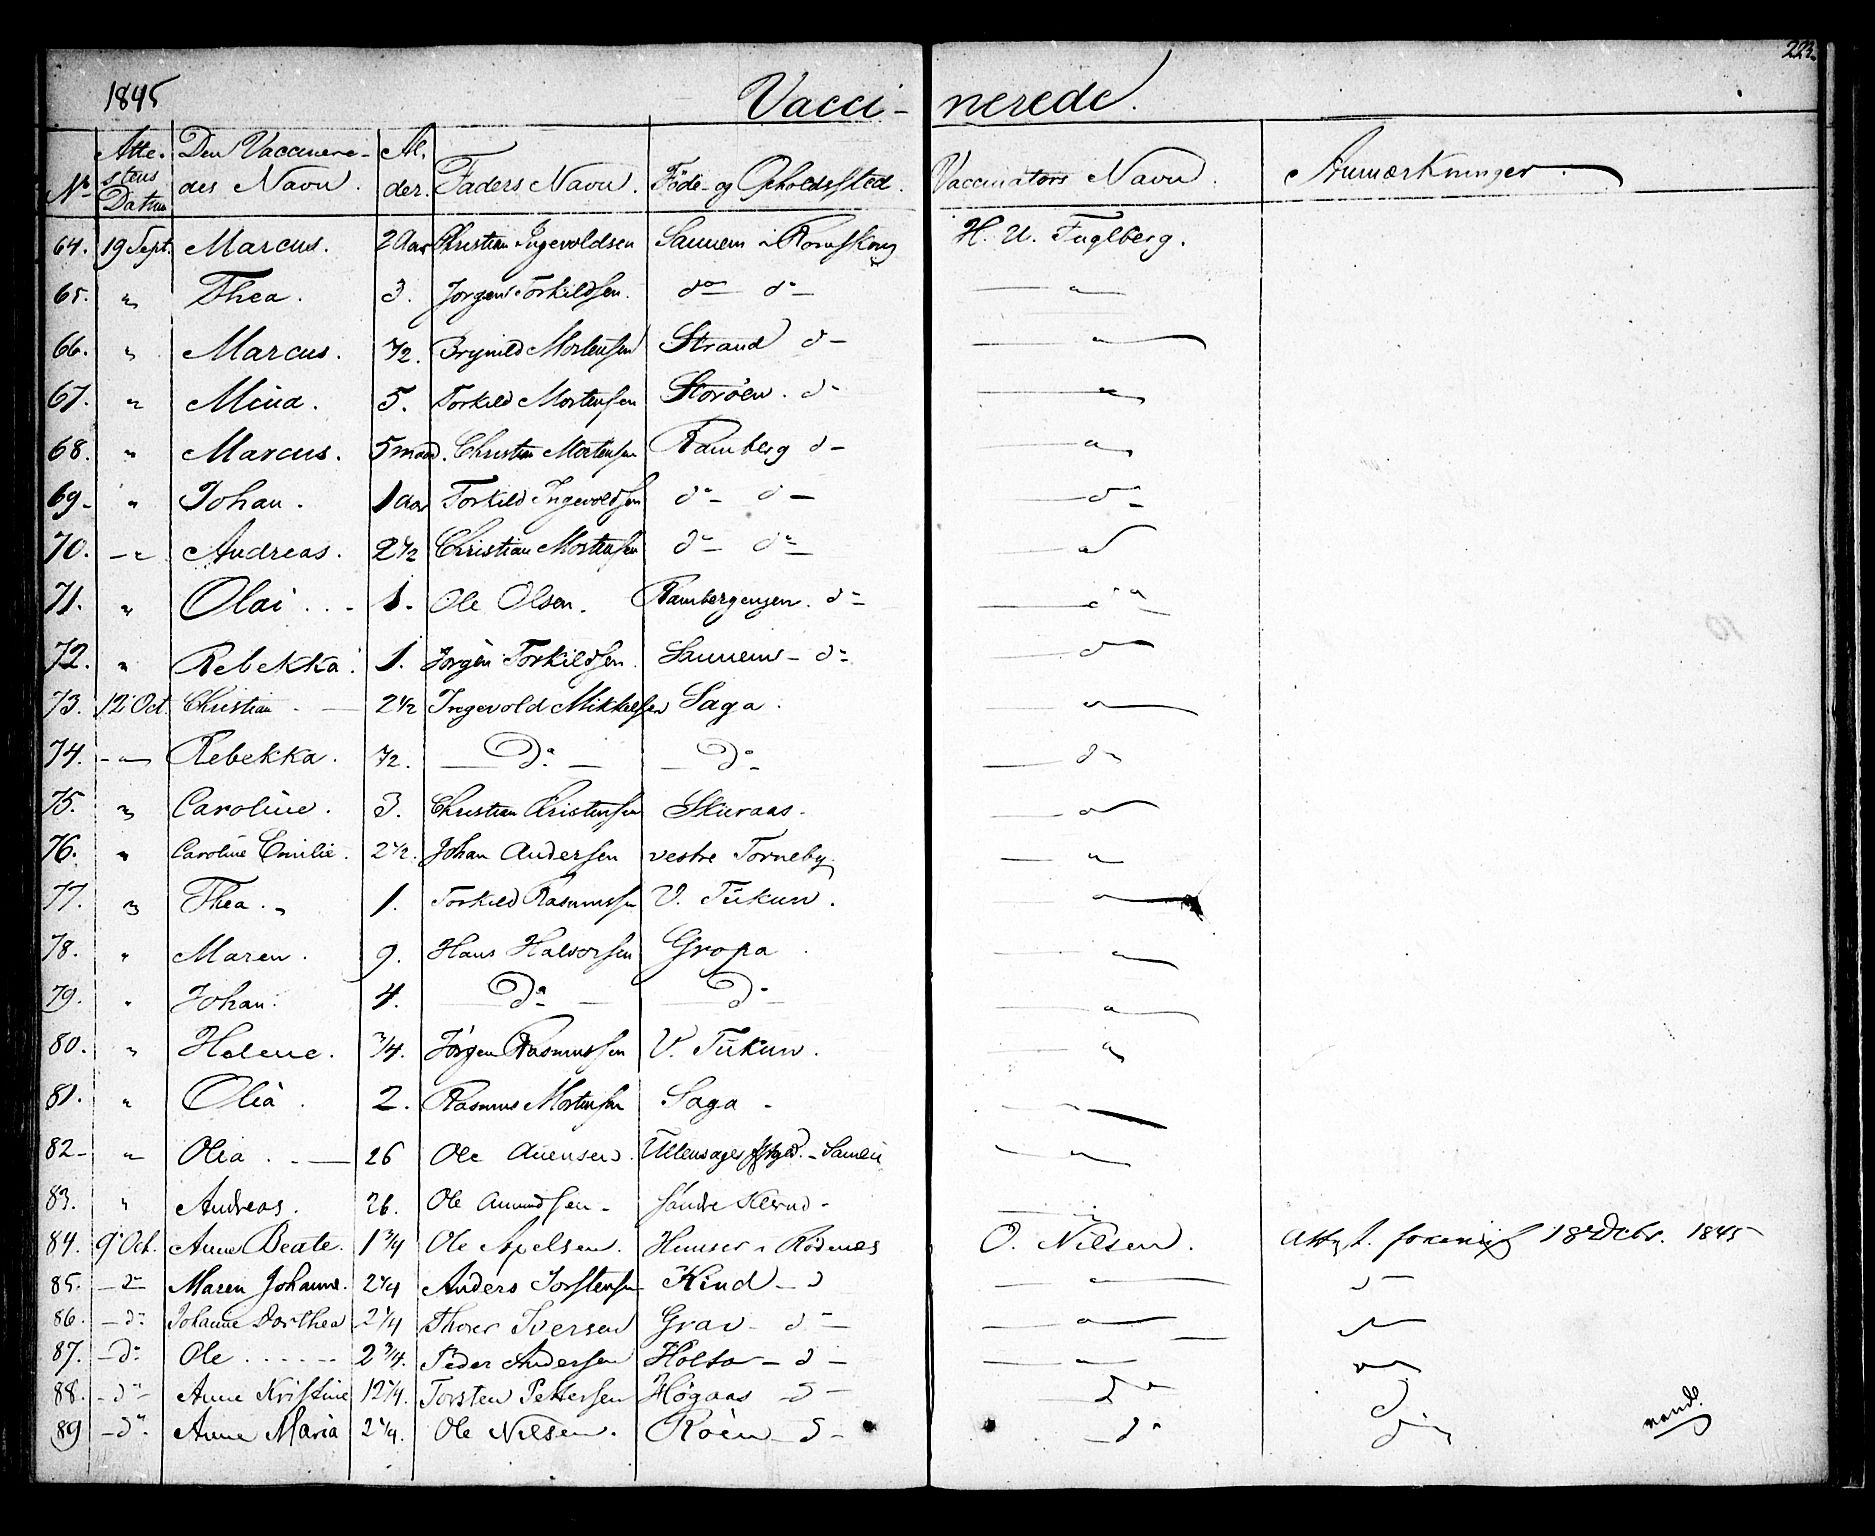 223.
1845
Vacci- nerede.
No Atte-stens Datum Den Vaccinere-des Navn. Al-der. Faders Navn. Föde- og Opholdssted. Vaccinators Navn. Anmærkninger.
64. 19 Sept. Marcus. 2 Aar Christian Ingevoldsen Sannem i Römskoug H. U. Fuglberg.
65. " Thea. 3. Jörgen Torkildsen. do do "
66. " Marcus. 1/2. Brynild Mortensen Strand do "
67. " Mina. 5. Torkild Mortensen Storöen. do "
68. " Marcus. 5 maan. Christian Mortensen Ramberg do "
69. " Johan. 1 Aar Torkild Ingevoldsen do do do
70. " Andreas. 2 1/2 Christian Mortensen do do "
71. " Olai 1. Ole Olsen. Rambergengen. do "
72. " Rebekka. 1. Jörgen Torkildsen. Sannem do do
73. 12 Oct. Christian 2 1/2 Ingevold Mikkelsen Saga. "
74. " Rebekka. 1/2. Do Do do
75. " Caroline. 3. Christian Christensen Skieraas. "
76. " Caroline Emilie. 2 1/2. Johan Andersen vestre Torneby. "
77. " Thea. 1. Torkild Rasmussen V. Tükun. "
78. " Maren. 9. Hans Halvorsen Gropa "
79. " Johan. 4. Do Do "
80. " Helene. 3/4. Jörgen Rasmussen V. Tükun. "
81. " Olia. 2. Rasmus Mortensen Saga "
82. " Olea. 26 Ole Ullensager - Sanem "
83. " Andreas. 26. Ole Amundsen söndre "
84. 9 Oct. Anne Beate. 1 3/4 Ole Apelsen. i Rödenes O. Nilsen. 18 Decbr. 1845
85. do Maren Johanne. 2 1/4 Anders Torstensen Kind do " do
86. do Johanne Dorthea 2 1/4 Thoer Iversen Grav do " "
87. do Ole 2 3/4. Peder Andersen Holta do " "
88. do Anne Kristine 12 1/4. Torsten Pettersen Högaas do do do
89 do Anne Maria 2 1/4. Ole Nilsen. Röen do do do